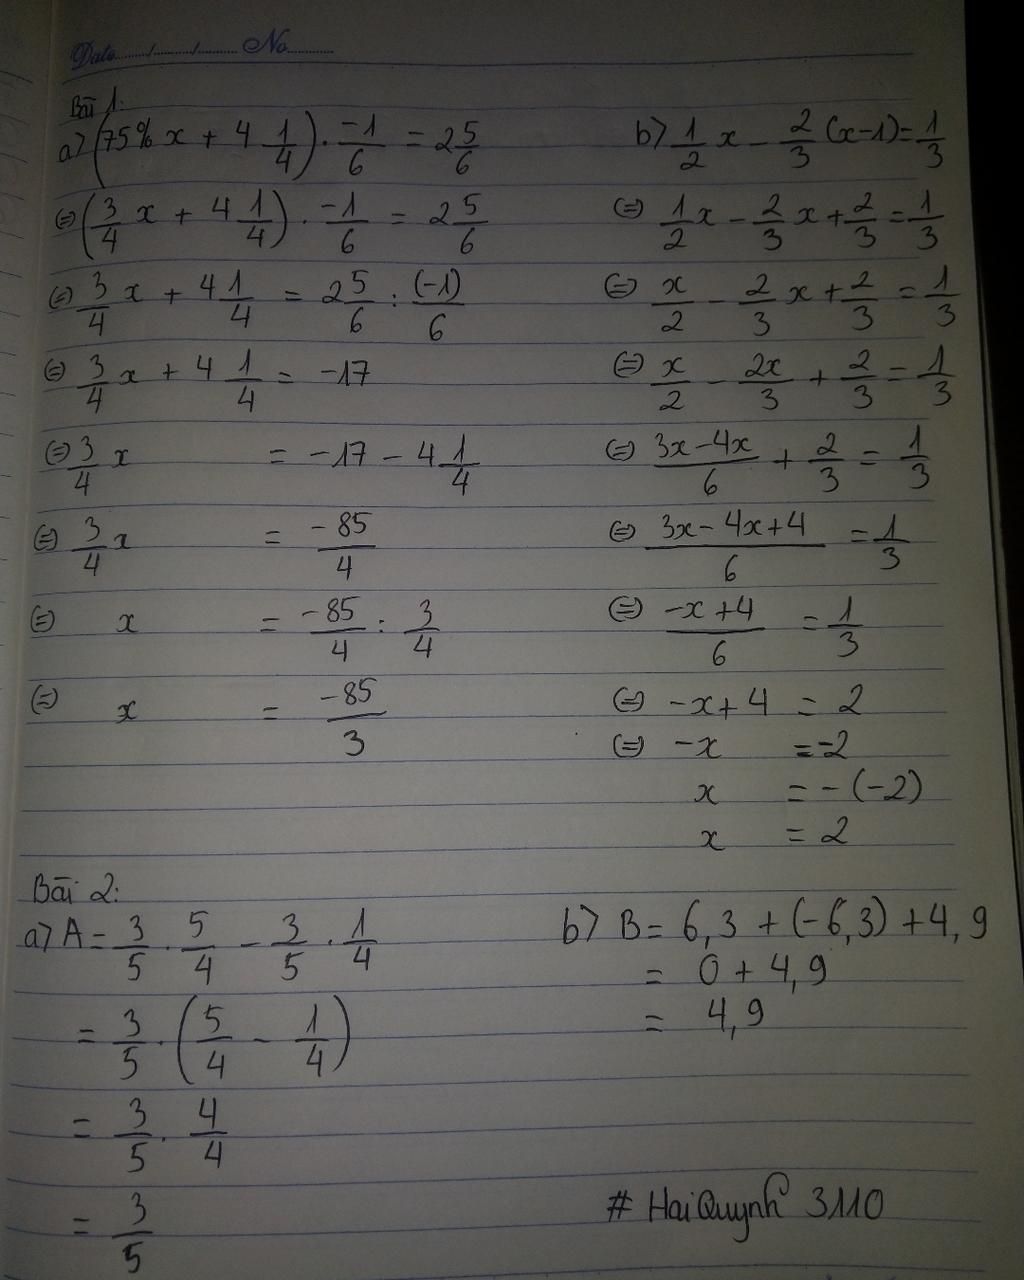 Date....../....../........ No............
Bài 1:
a) (75% x + 4 1/4) . -1/6 = 2 5/6
⇔ (3/4 x + 4 1/4) . -1/6 = 2 5/6
⇔ 3/4 x + 4 1/4 = 2 5/6 : (-1)/6
⇔ 3/4 x + 4 1/4 = -17
⇔ 3/4 x = -17 - 4 1/4
⇔ 3/4 x = -85/4
⇔ x = -85/4 : 3/4
⇔ x = -85/3
b) 1/2 x - 2/3 (x-1) = 1/3
⇔ 1/2 x - 2/3 x + 2/3 = 1/3
⇔ x/2 - 2/3 x + 2/3 = 1/3
⇔ x/2 - 2x/3 + 2/3 = 1/3
⇔ 3x-4x/6 + 2/3 = 1/3
⇔ 3x-4x+4/6 = 1/3
⇔ -x+4/6 = 1/3
⇔ -x+4 = 2
⇔ -x = -2
x = -(-2)
x = 2
Bài 2:
a) A = 3/5 . 5/4 - 3/5 . 1/4
= 3/5 . (5/4 - 1/4)
= 3/5 . 4/4
= 3/5
b) B = 6,3 + (-6,3) + 4,9
= 0 + 4,9
= 4,9
# HaiQuynh 3110